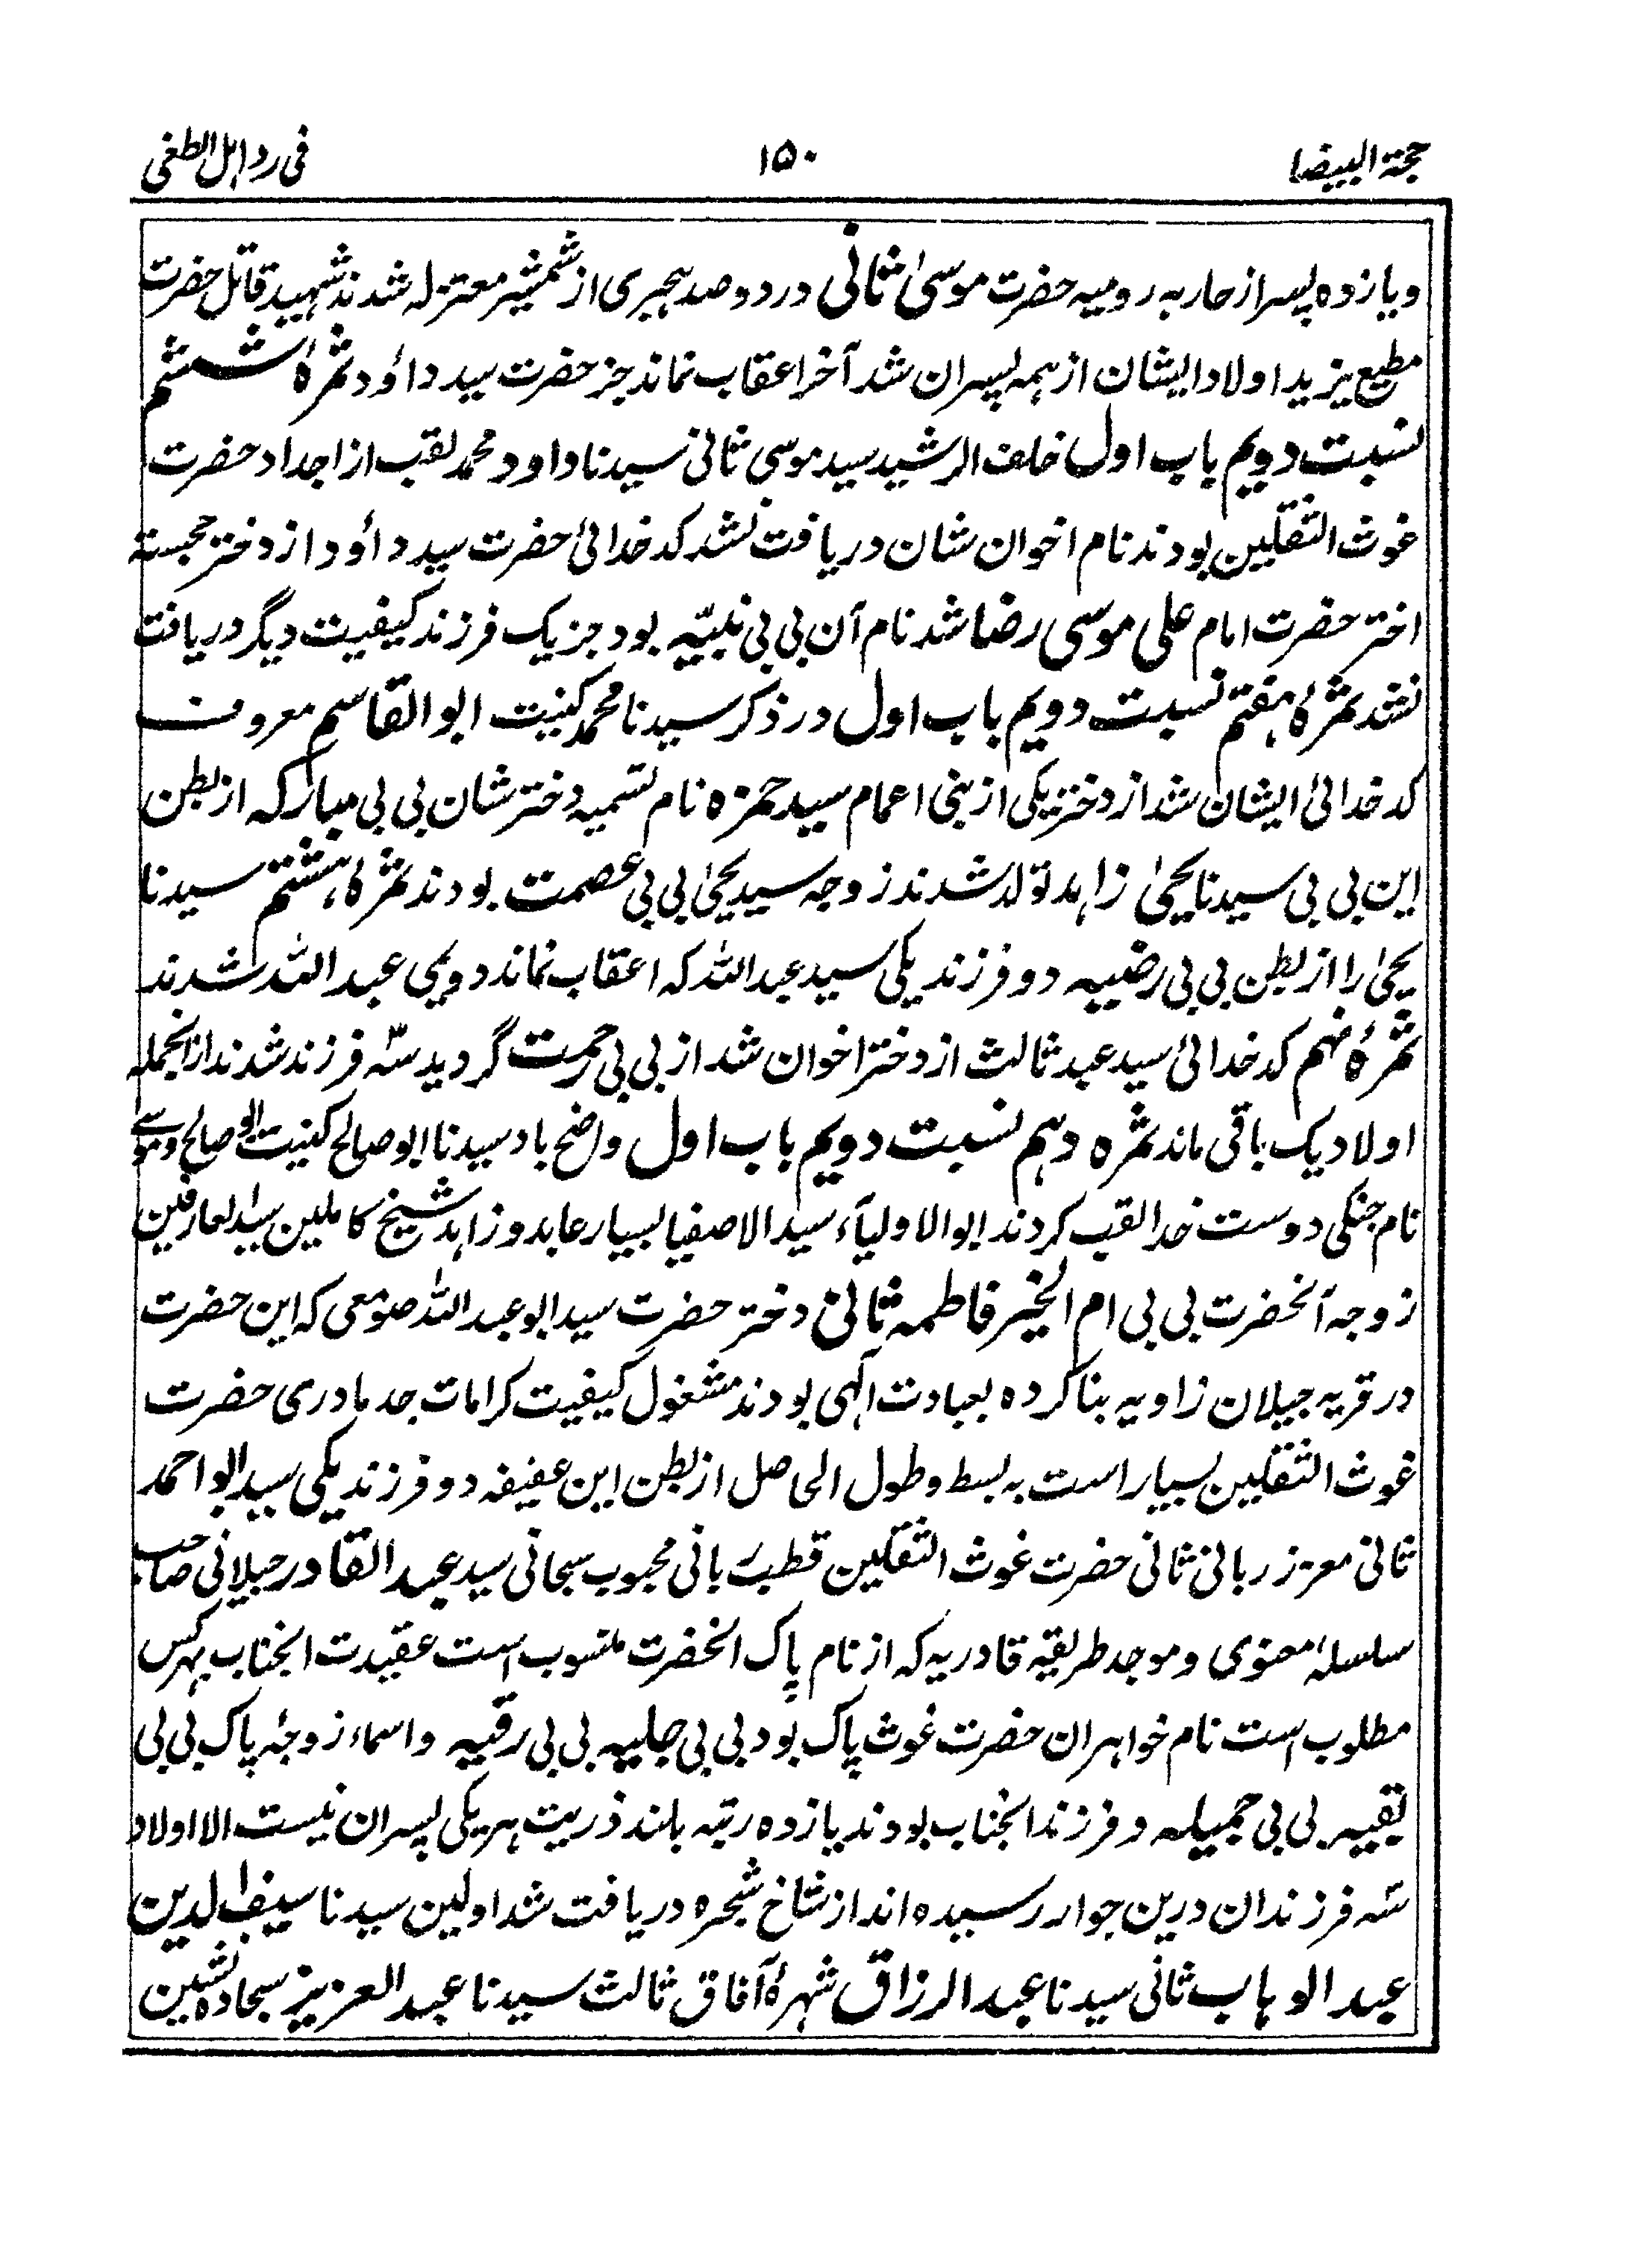 حجة البیضا ۱۵۰ فی رد اہل الطغی
ویازده پسر از حاربہ رومیہ حضرت موسیٰ ثانی در دوصد ہجری از شمشیر معتزلہ شدند شہید قاتل حضرت
مطیع یزید اولاد ایشان از ہمہ پسران شد آخر اعقاب نماند جز حضرت سید داؤد ثمرۂ ششم
نسبت دویم باب اول خلف الرشید سید موسی ثانی سیدنا داود محمد لقب از اجداد حضرت
غوث الثقلین بودند نام اخوان شان دریافت نشد کدخدائی حضرت سید داؤد از دختر خجستہ
اختر حضرت امام علی موسی رضا شد نام آن بی بی نبیّہ بود جز یک فرزند کیفیت دیگر دریافت
نشد ثمرۂ ہفتم نسبت دویم باب اول در ذکر سیدنا محمد کنیت ابوالقاسم معروف
کدخدائی ایشان شد از دختر یکی از بنی اعمام سید حمزہ نام تسمیہ دختر شان بی بی مبارکہ از بطن
این بی بی سیدنا یحیٰی زاہد تولد شدند زوجہ سید یحیٰی بی بی عصمت بودند ثمرۂ ہشتم سیدنا
یحیٰی را از بطن بی بی رضیہ دو فرزند یکی سید عبد اللہ کہ اعقاب نماند دویمی عبد اللہ شدند
ثمرۂ نہم کدخدائی سید عبد ثالث از دختر اخوان شد از بی بی رحمت گردید سہ فرزند شدند ازانجملہ
اولاد یک باقی ماند ثمرہ دہم نسبت دویم باب اول واضح باد سیدنا ابو صالح کنیت ابو صالح و موسے
نام جنگی دوست خدا لقب کردند ابو الاولیآء سید الاصفیا بسیار عابد و زاہد شیخ کاملین سید العارفین
زوجہ آنحضرت بی بی ام الخیر فاطمہ ثانی دختر حضرت سید ابو عبد اللہ صومعی کہ این حضرت
در قریہ جیلان زاویہ بنا کردہ بعبادت الٰہی بودند مشغول کیفیت کرامات جد مادری حضرت
غوث الثقلین بسیار است بہ بسط و طول الحاصل از بطن این عفیفہ دو فرزند یکی سید ابو احمد
ثانی معزز ربانی ثانی حضرت غوث الثقلین قطب ربانی محبوب سبحانی سید عبد القادر جیلانی صاحب
سلسلۂ معنوی و موجد طریقہ قادریہ کہ از نام پاک انحضرت منسوب است عقیدت انجناب بہر کس
مطلوب است نام خواہران حضرت غوث پاک بود بی بی جلیہ بی بی رقیہ و اسماء زوجۂ پاک بی بی
نقیبہ بی بی جمیلہ و فرزند انجناب بودند یازدہ رتبہ بلند ذریت ہر یکی پسران نیست الا اولاد
سہ فرزندان درین جوار رسیدہ اند از شاخ شجرہ دریافت شد اولین سیدنا سیف الدین
عبد الوہاب ثانی سیدنا عبد الرزاق شہرۂ آفاق ثالث سیدنا عبد العزیز سجادہ نشین